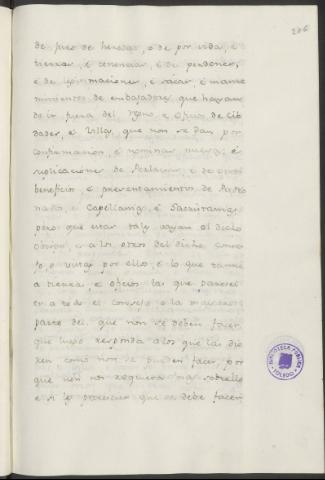 206
de juro de heredad, o de por vida, e
tierras, e tenencias, e de perdones,
e de legitimaciones, e sacas, e mante
nimientos de embajadores que hayan
de ir fuera del Reyno e oficios de Cib
dades, e Villas, que non se dan por
confirmacion, e nominas nuevas, e
suplicaciones de Perlacias, e de otros
beneficios, e presentamientos de
e Capellanias, e Sacristanias,
pero que estas tales vayan al dicho
Obispo, e a los otros del dicho conse
jo a vistas por ellos, e lo que
a tierras, e oficios las que pareciere
en a todo el consejo o la mayor
parte del que non se deben facer
que luego responda a los que las dio
ren como non se pueden facer, por
que non nos requieran mas sobrello
e si les pareciere que se debe facer
BIBLIOTECA PUBLICA
TOLEDO